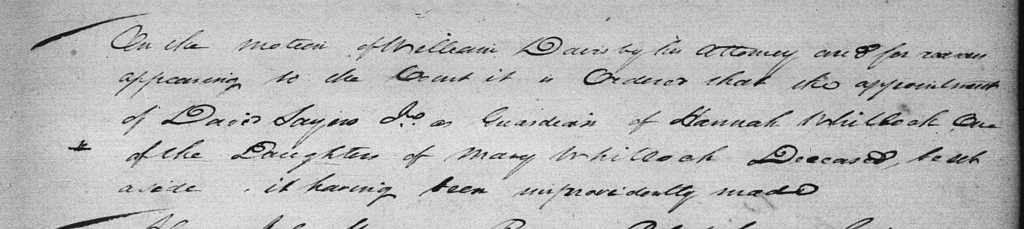 On the motion of William Davis by his Attorney and for reasons
appearing to the Court it is Ordered that the appointment
of David Sayers Jr. as Guardian of Hannah Whitlock One
of the Daughters of Mary Whitlock Deceased, be set
aside, it having been improvidently made